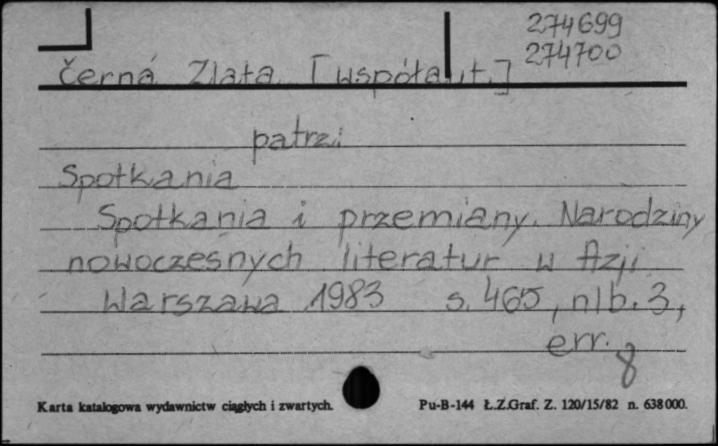 274699
274700
Černá Zlata [współaut.]
patrz:
Spotkania
Spotkania i przemiany. Narodziny
nowoczesnych literatur w Azji
Warszawa 1983 s. 465, nlb. 3,
err.
8
Karta katalogowa wydawnictw ciągłych i zwartych.
Pu-B-144 Ł.Z.Graf. Z. 120/15/82 n. 638000.